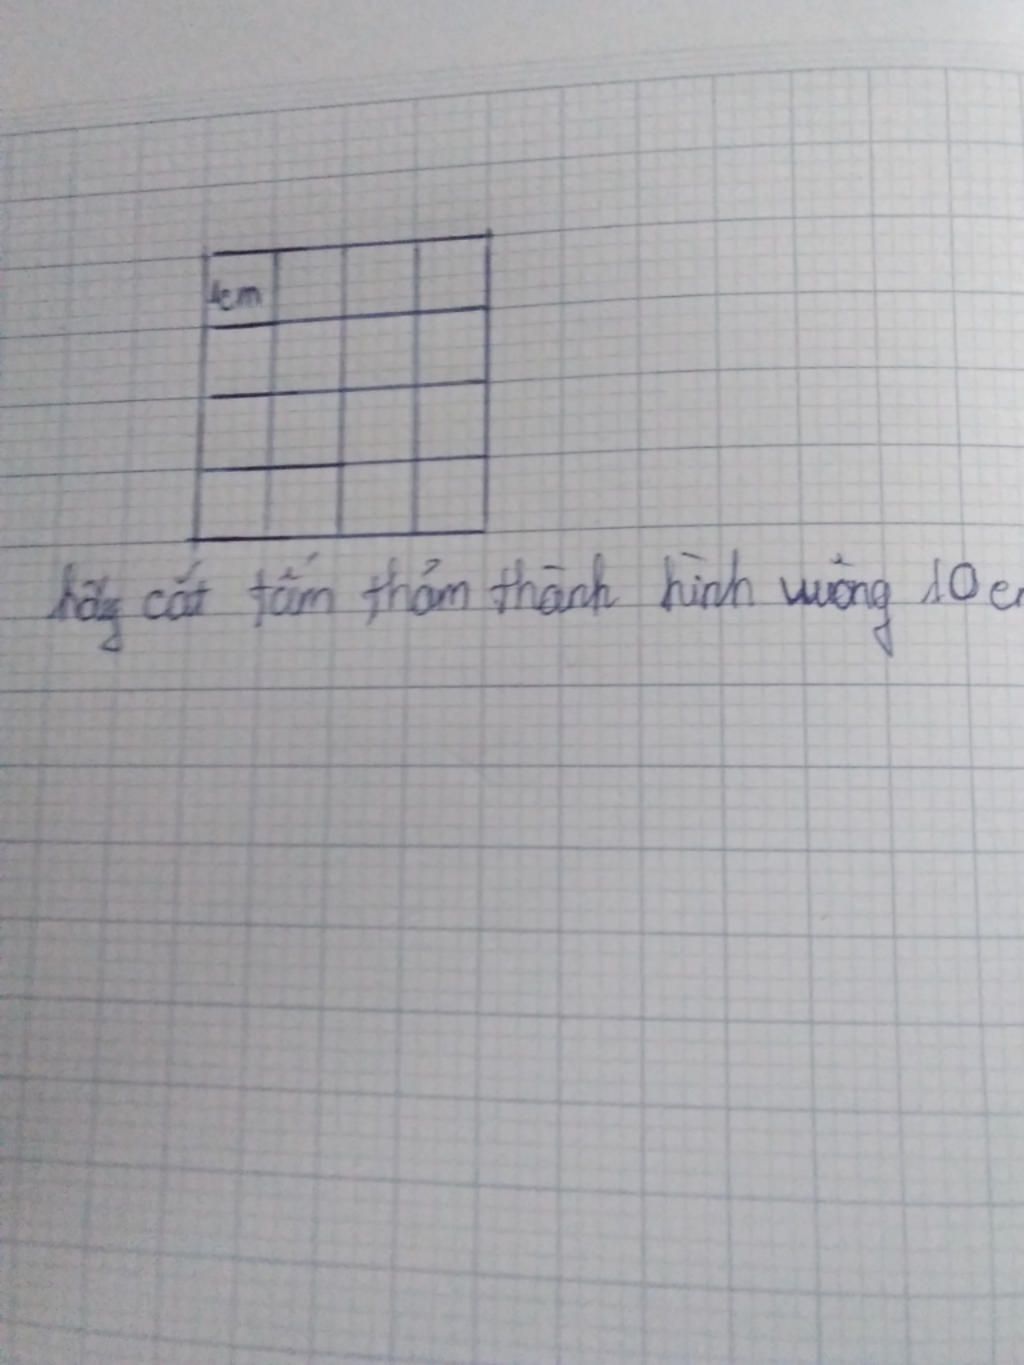 1cm
hãy cắt tấm thảm thành hình vuông 10